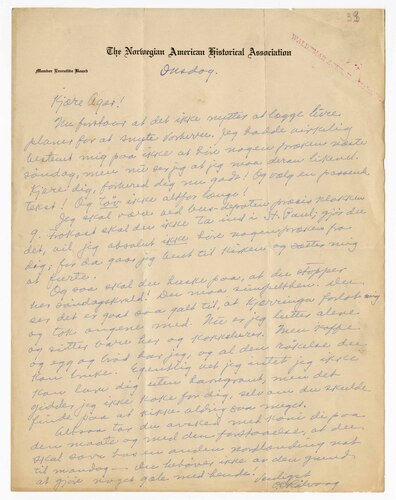 38
The Norwegian American Historical Association
Member Executive Board
Onsdag.
Kjære Ager!
Nu forstaar at det ikke nytter at lægge
planer for at snyte Vorherre. Jeg hadde virkelig
bestemt mig paa ikke at høre nogen præken næste
søndag, men nu ser jeg at jeg maa døran likevel.
Kjære dig, forbered dig nu godt! Og vælg en passende
tekst! Og tør ikke altfor længe!
Jeg skal være ved bus-depotet præcis klokken
9. Frokost skal du ikke ta ind i St. Paul; gjør du
det, vil jeg absolut ikke høre nogen præken fra
dig, for da gaar jeg bent til kirken og sætter mig
at furte.
Og saa skal du huske paa, at du stopper
hos søndagskveld! Du maa simpelthen. Du
ser det er gaat saa galt til, at kjærringa forlot mig
og tok ungene med. Nu er jeg lutter alene
og sitter bare her og kokkelurer. Men kaffe
og egg og brød har jeg, og al den røkelse du
kan bruke. Egentlig vet jeg intet jeg ikke
kan lave dig uten havregraut, men det
gidder jeg ikke koke for dig, selv om du skulde
finde paa at kikke aldrig saa meget.
Altsaa tar du avsked med koni di paa
den maate og med den forstaaelse, at du
skal sove hos en anden nordlænding nat
til mandag — du behøver ikke av den grund
at gjøre noget gale med hende! Venligst
OE Rølvaag